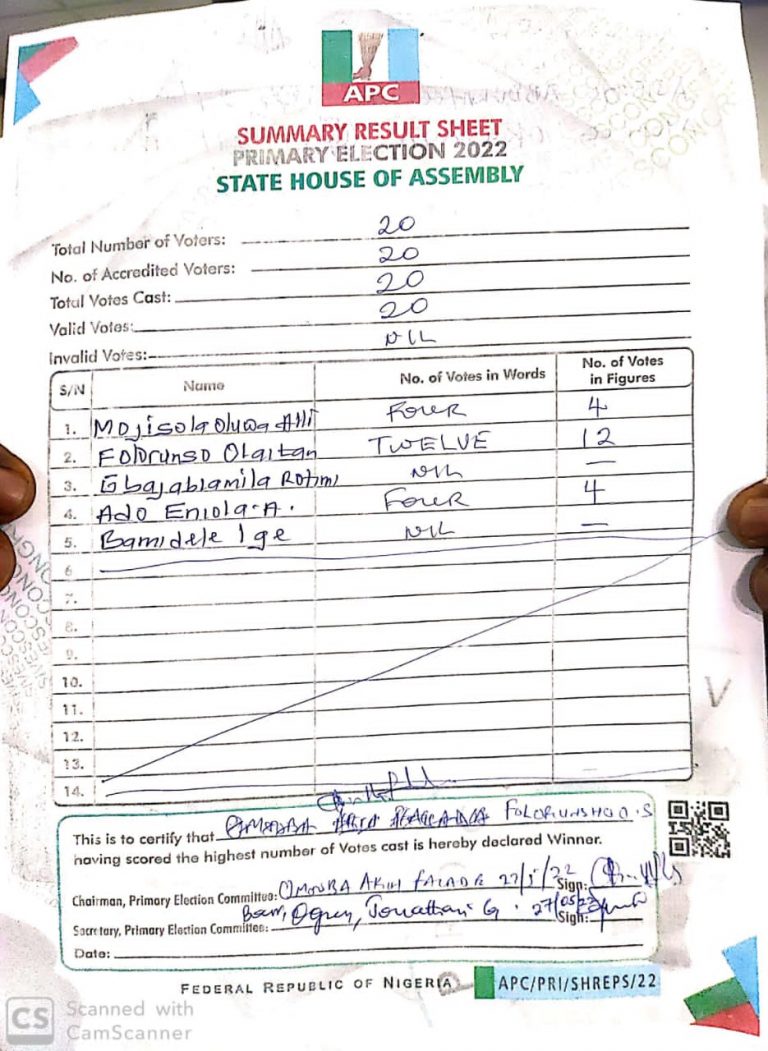 APC
SUMMARY RESULT SHEET
PRIMARY ELECTION 2022
STATE HOUSE OF ASSEMBLY
Total Number of Voters: 20
No. of Accredited Voters: 20
Total Votes Cast: 20
Valid Votes: 20
Invalid Votes: NIL
S/N Name No. of Votes in Words No. of Votes in Figures
1. Mojisolaoluwa Alli FOUR 4
2. Folorunso Olaitan TWELVE 12
3. Gbajabiamila Rotimi NIL —
4. Ado Eniola A. FOUR 4
5. Bamidele Ige NIL —
6
7.
8.
9.
10.
11.
12.
13.
14.
This is to certify that FOLORUNSHO O.S
having scored the highest number of Votes cast is hereby declared Winner.
Chairman, Primary Election Committee: OMOUBA AKIN FALADE 27/5/22 Sign:
Secretary, Primary Election Committee: Jonathan G. 27/05/22 Sign:
Date:
FEDERAL REPUBLIC OF NIGERIA APC/PRI/SHREPS/22
CS Scanned with
CamScanner